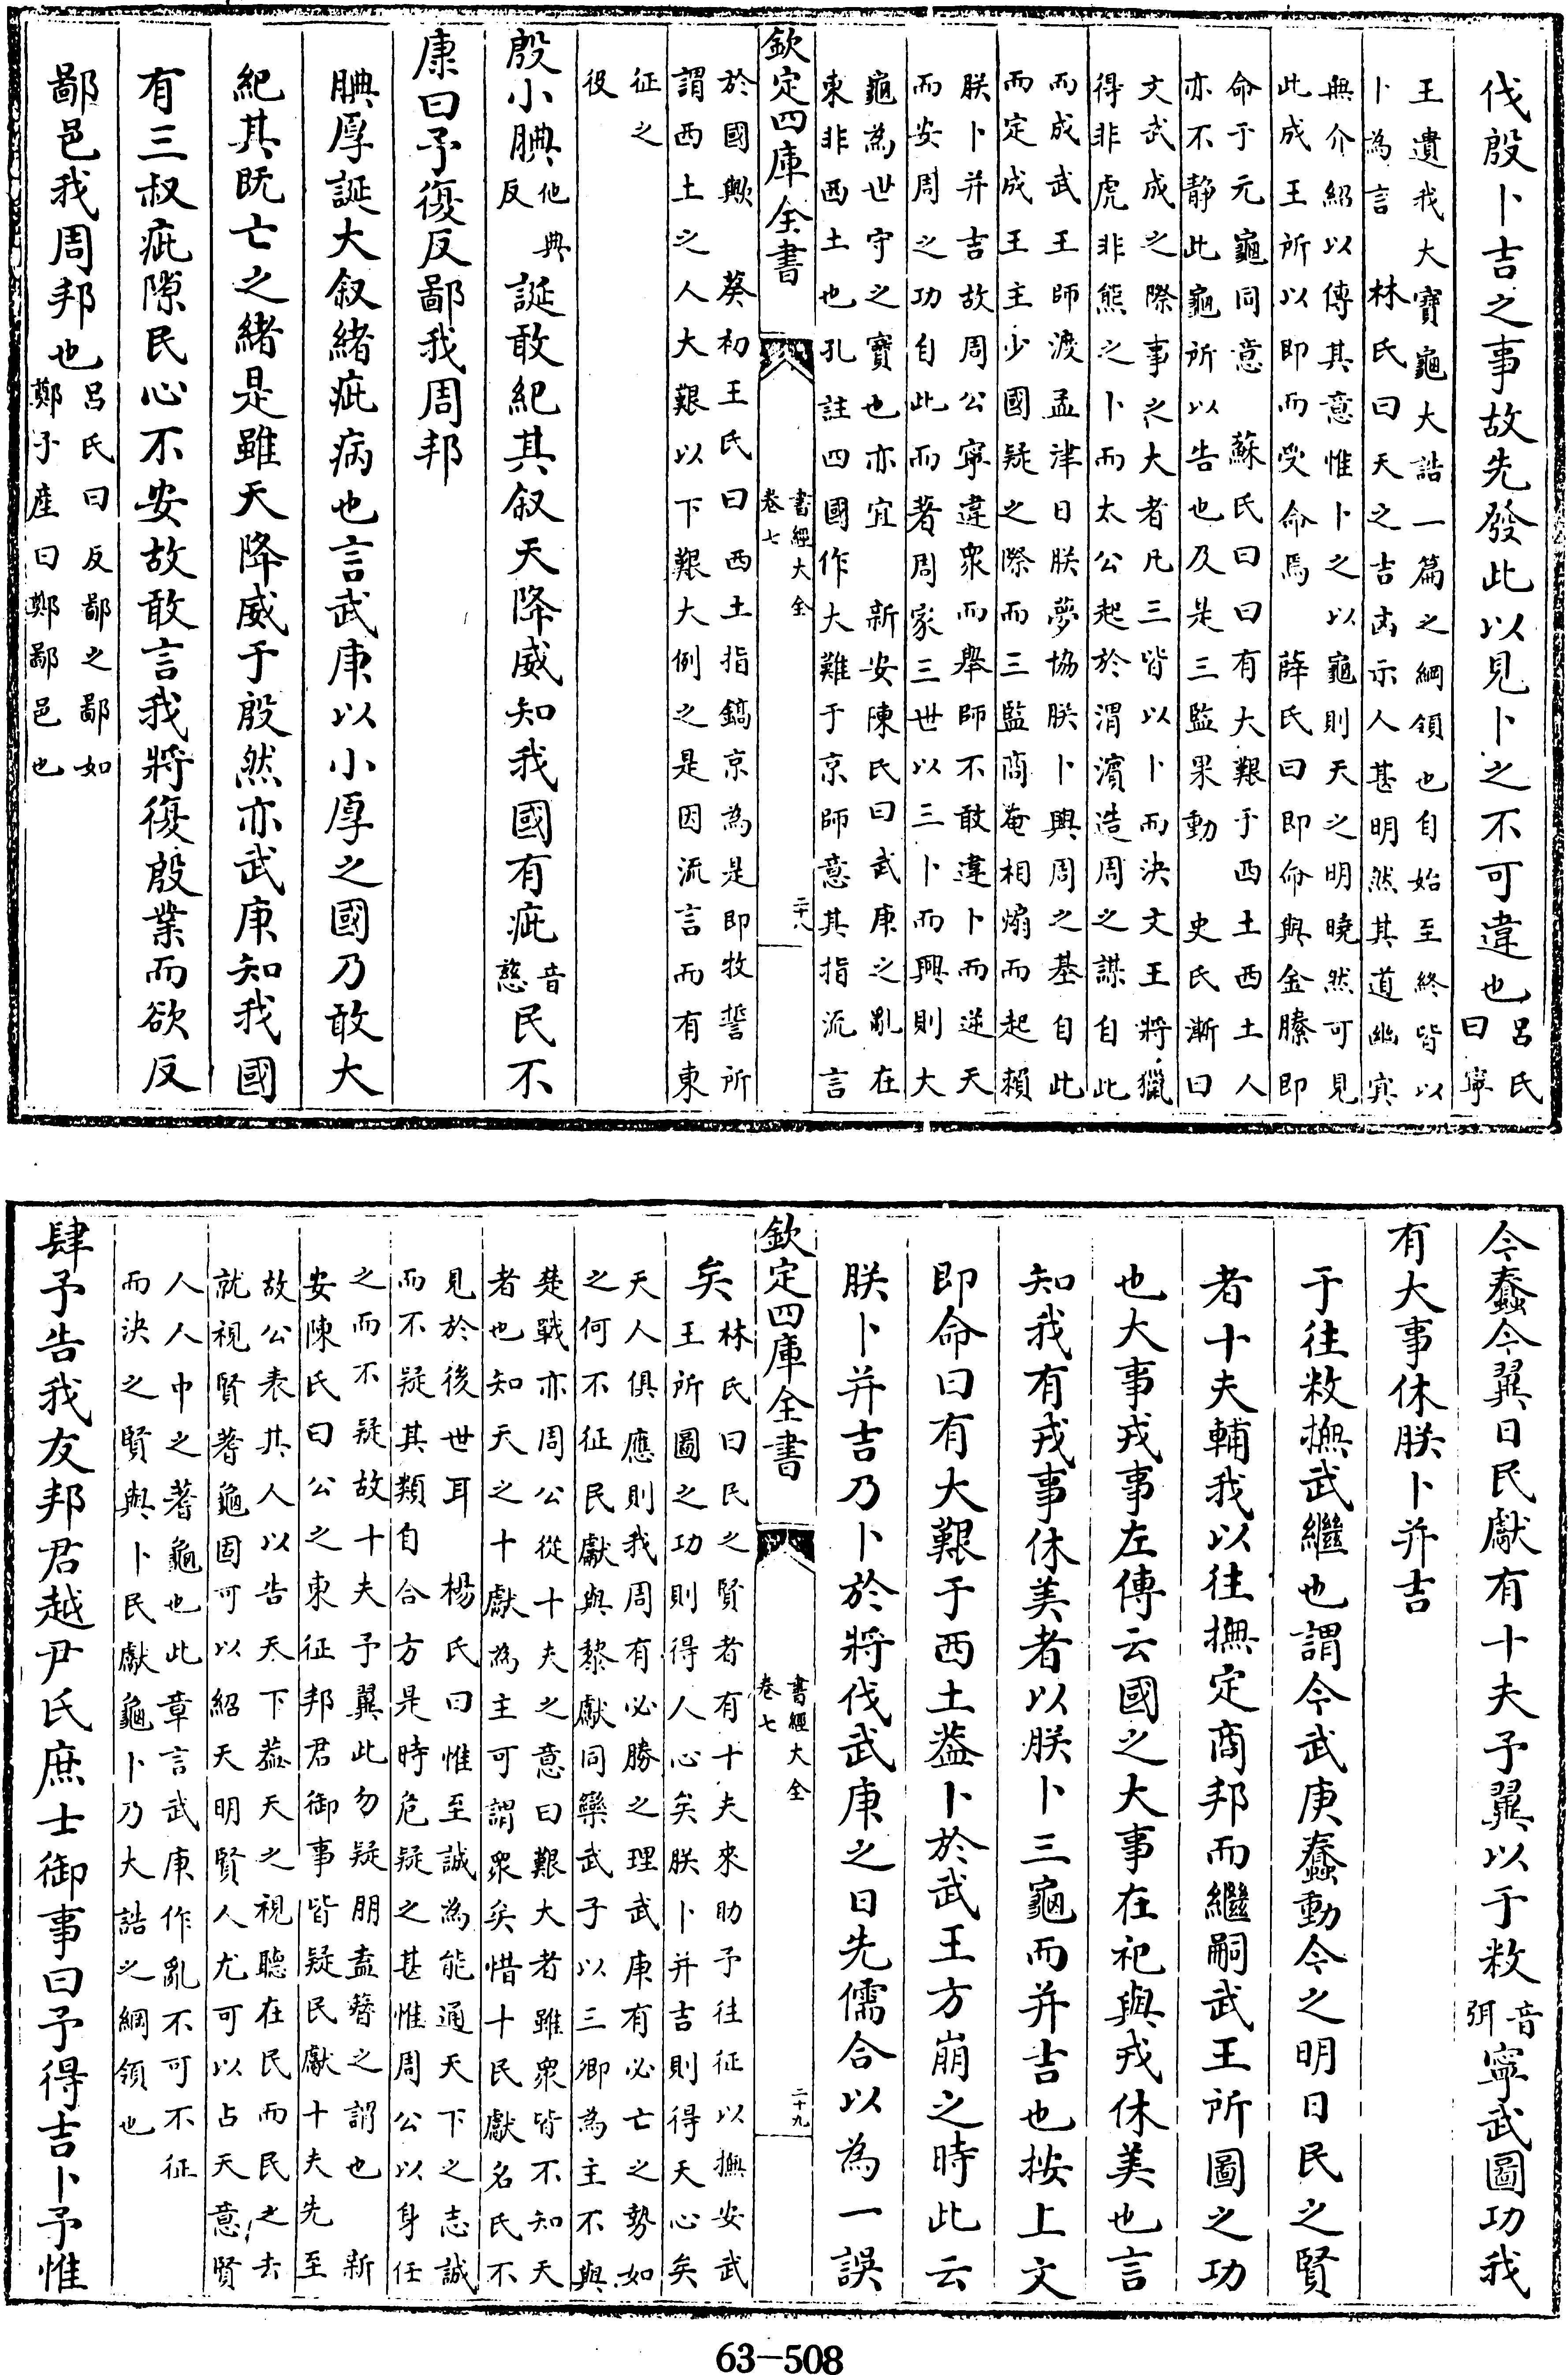 伐殷卜吉之事故先發此以見卜之不可違也呂氏
曰寧
王遺我大寶龜大誥一篇之綱領也自始至終皆以
卜為言　林氏曰天之吉凶示人甚明然其道幽㝠
無介紹以傳其意惟卜之以龜則天之明曉然可見
此成王所以即而受命焉　薛氏曰即命與金縢即
命于元龜同意　蘇氏曰曰有大艱于西土西土人
亦不静此龜所以告也及是三監果動　史氏漸曰
文武成之際事之大者凡三皆以卜而決文王將獵
得非虎非熊之卜而太公起於渭濱造周之謀自此
而成武王師渡孟津曰朕夢協朕卜興周之基自此
而定成王主少國疑之際而三監商奄相煽而起賴
朕卜并吉故周公寧違衆而舉師不敢違卜而逆天
而安周之功自此而著周家三世以三卜而興則大
龜為世守之寶也亦宜　新安陳氏曰武庚之亂在
東非西土也孔註四國作大難于京師意其指流言
欽定四庫全書
書經大全
卷七
二十八
於國歟　葵初王氏曰西土指鎬京為是即牧誓所
謂西土之人大艱以下艱大例之是因流言而有東
征之
役
殷小腆他典
反誕敢紀其叙天降威知我國有疵音
慈民不
康曰予復反鄙我周邦
腆厚誕大叙緒疵病也言武庚以小厚之國乃敢大
紀其既亡之緒是雖天降威于殷然亦武庚知我國
有三叔疵隙民心不安故敢言我將復殷業而欲反
鄙邑我周邦也呂氏曰反鄙之鄙如
鄭子産曰鄭鄙邑也
今蠢今翼日民獻有十夫予翼以于敉音
弭寧武圖功我
有大事休朕卜并吉
于往敉撫武繼也謂今武庚蠢動今之明日民之賢
者十夫輔我以往撫定商邦而繼嗣武王所圖之功
也大事戎事左傳云國之大事在祀與戎休美也言
知我有戎事休美者以朕卜三龜而并吉也按上文
即命曰有大艱于西土葢卜於武王方崩之時此云
朕卜并吉乃卜於將伐武庚之日先儒合以為一誤
欽定四庫全書
書經大全
卷七
二十九
矣林氏曰民之賢者有十夫來助予往征以撫安武
王所圖之功則得人心矣朕卜并吉則得天心矣
天人俱應則我周有必勝之理武庚有必亡之勢如
之何不征民獻與黎獻同欒武子以三卿為主不與
楚戰亦周公從十夫之意曰艱大者雖衆皆不知天
者也知天之十獻為主可謂衆矣惜十民獻名氏不
見於後世耳　楊氏曰惟至誠為能通天下之志誠
而不疑其類自合方是時危疑之甚惟周公以身任
之而不疑故十夫予翼此勿疑朋盍簪之謂也　新
安陳氏曰公之東征邦君御事皆疑民獻十夫先至
故公表其人以告天下葢天之視聽在民而民之去
就視賢蓍龜固可以紹天明賢人尤可以占天意賢
人人中之蓍龜也此章言武庚作亂不可不征
而決之賢與卜民獻龜卜乃大誥之綱領也
肆予告我友邦君越尹氏庶士御事曰予得吉卜予惟
63-508